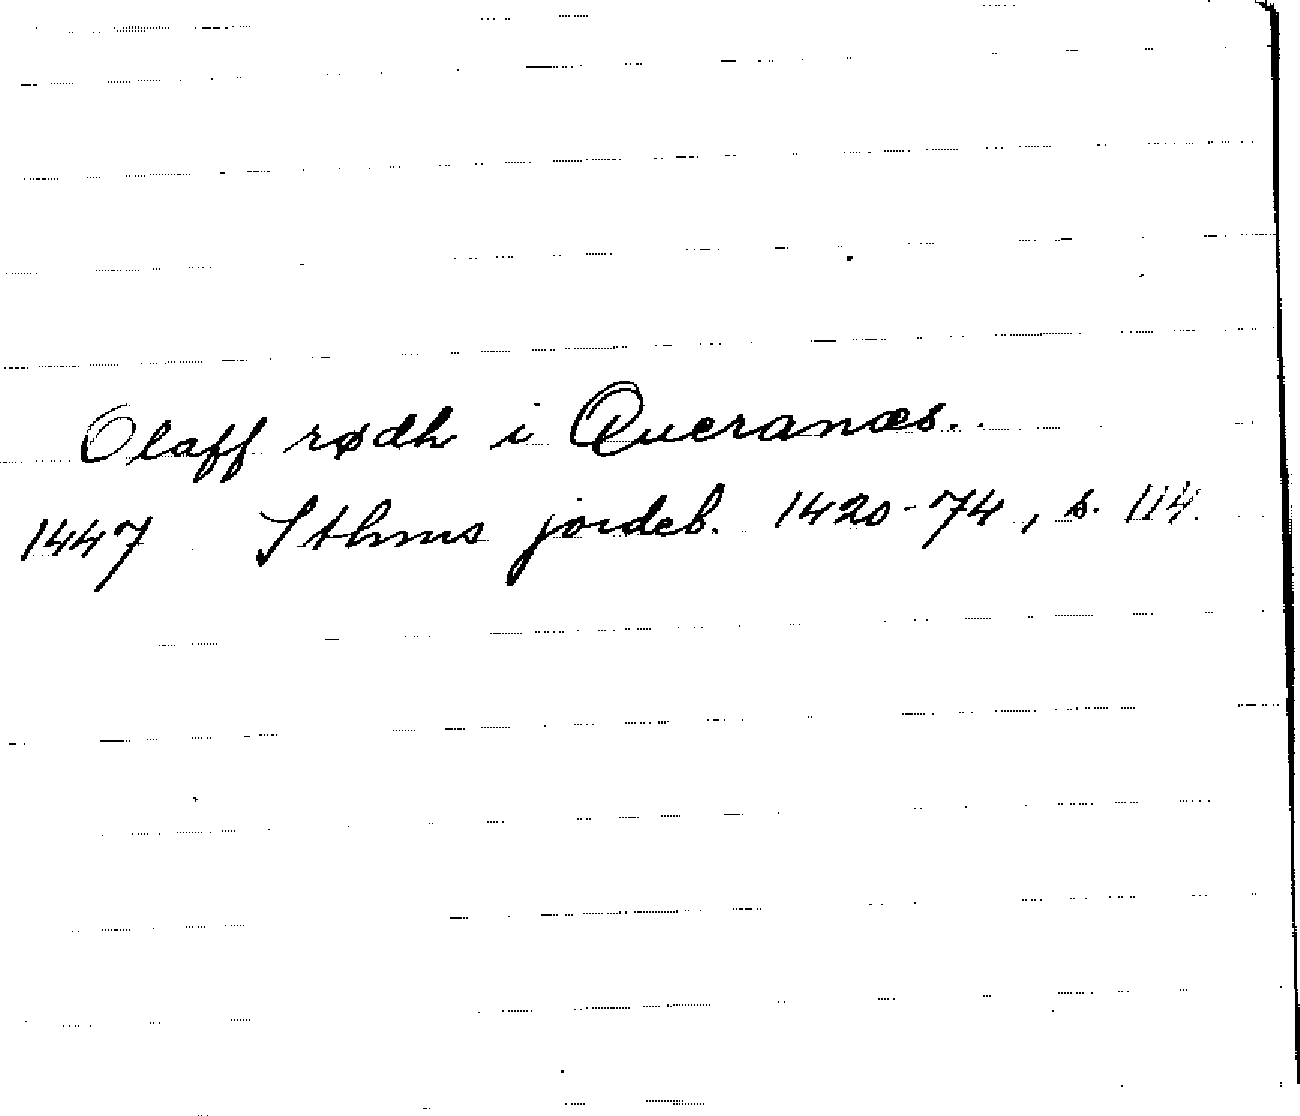 Olaff rødh i Queranæs.
1447 Sthms jordeb. 1420-74, s. 114.